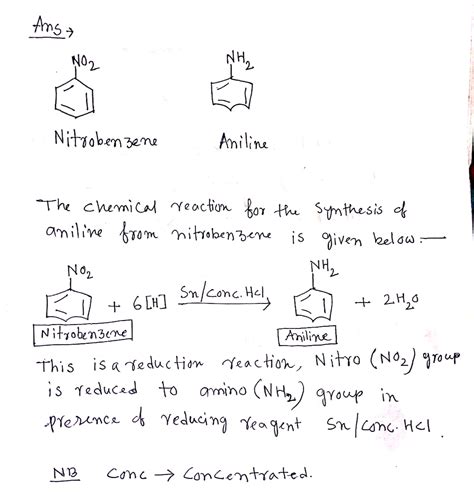 Ans →
NO2 NH2
Nitrobenzene Aniline
The chemical reaction for the synthesis of
aniline from nitrobenzene is given below:—
NO2 NH2
+ 6[H] Sn/conc. HCl + 2H2O
Nitrobenzene Aniline
This is a reduction reaction, Nitro (NO2) group
is reduced to amino (NH2) group in
presence of reducing reagent Sn/conc. HCl.
NB Conc → Concentrated.